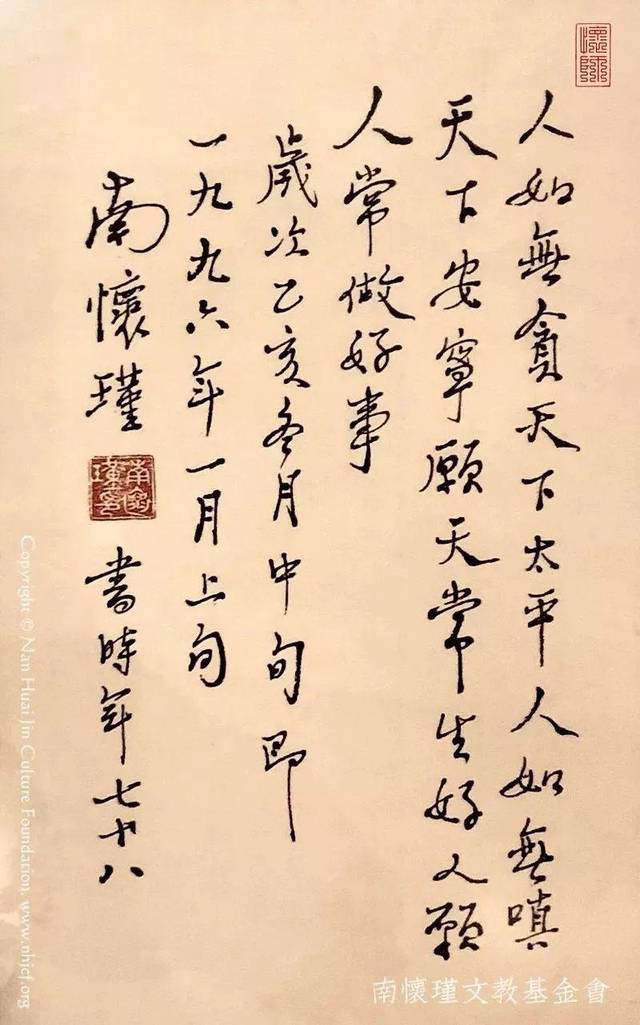 人如無貪天下太平人如無嗔
天下安寧願天常生好人願
人常做好事
歲次乙亥冬月中旬即
一九九六年一月上旬
南懷瑾
書時年七十八
南懷瑾文教基金會
Copyright © Nan Huai Jin Culture Foundation, www.nhjcf.org